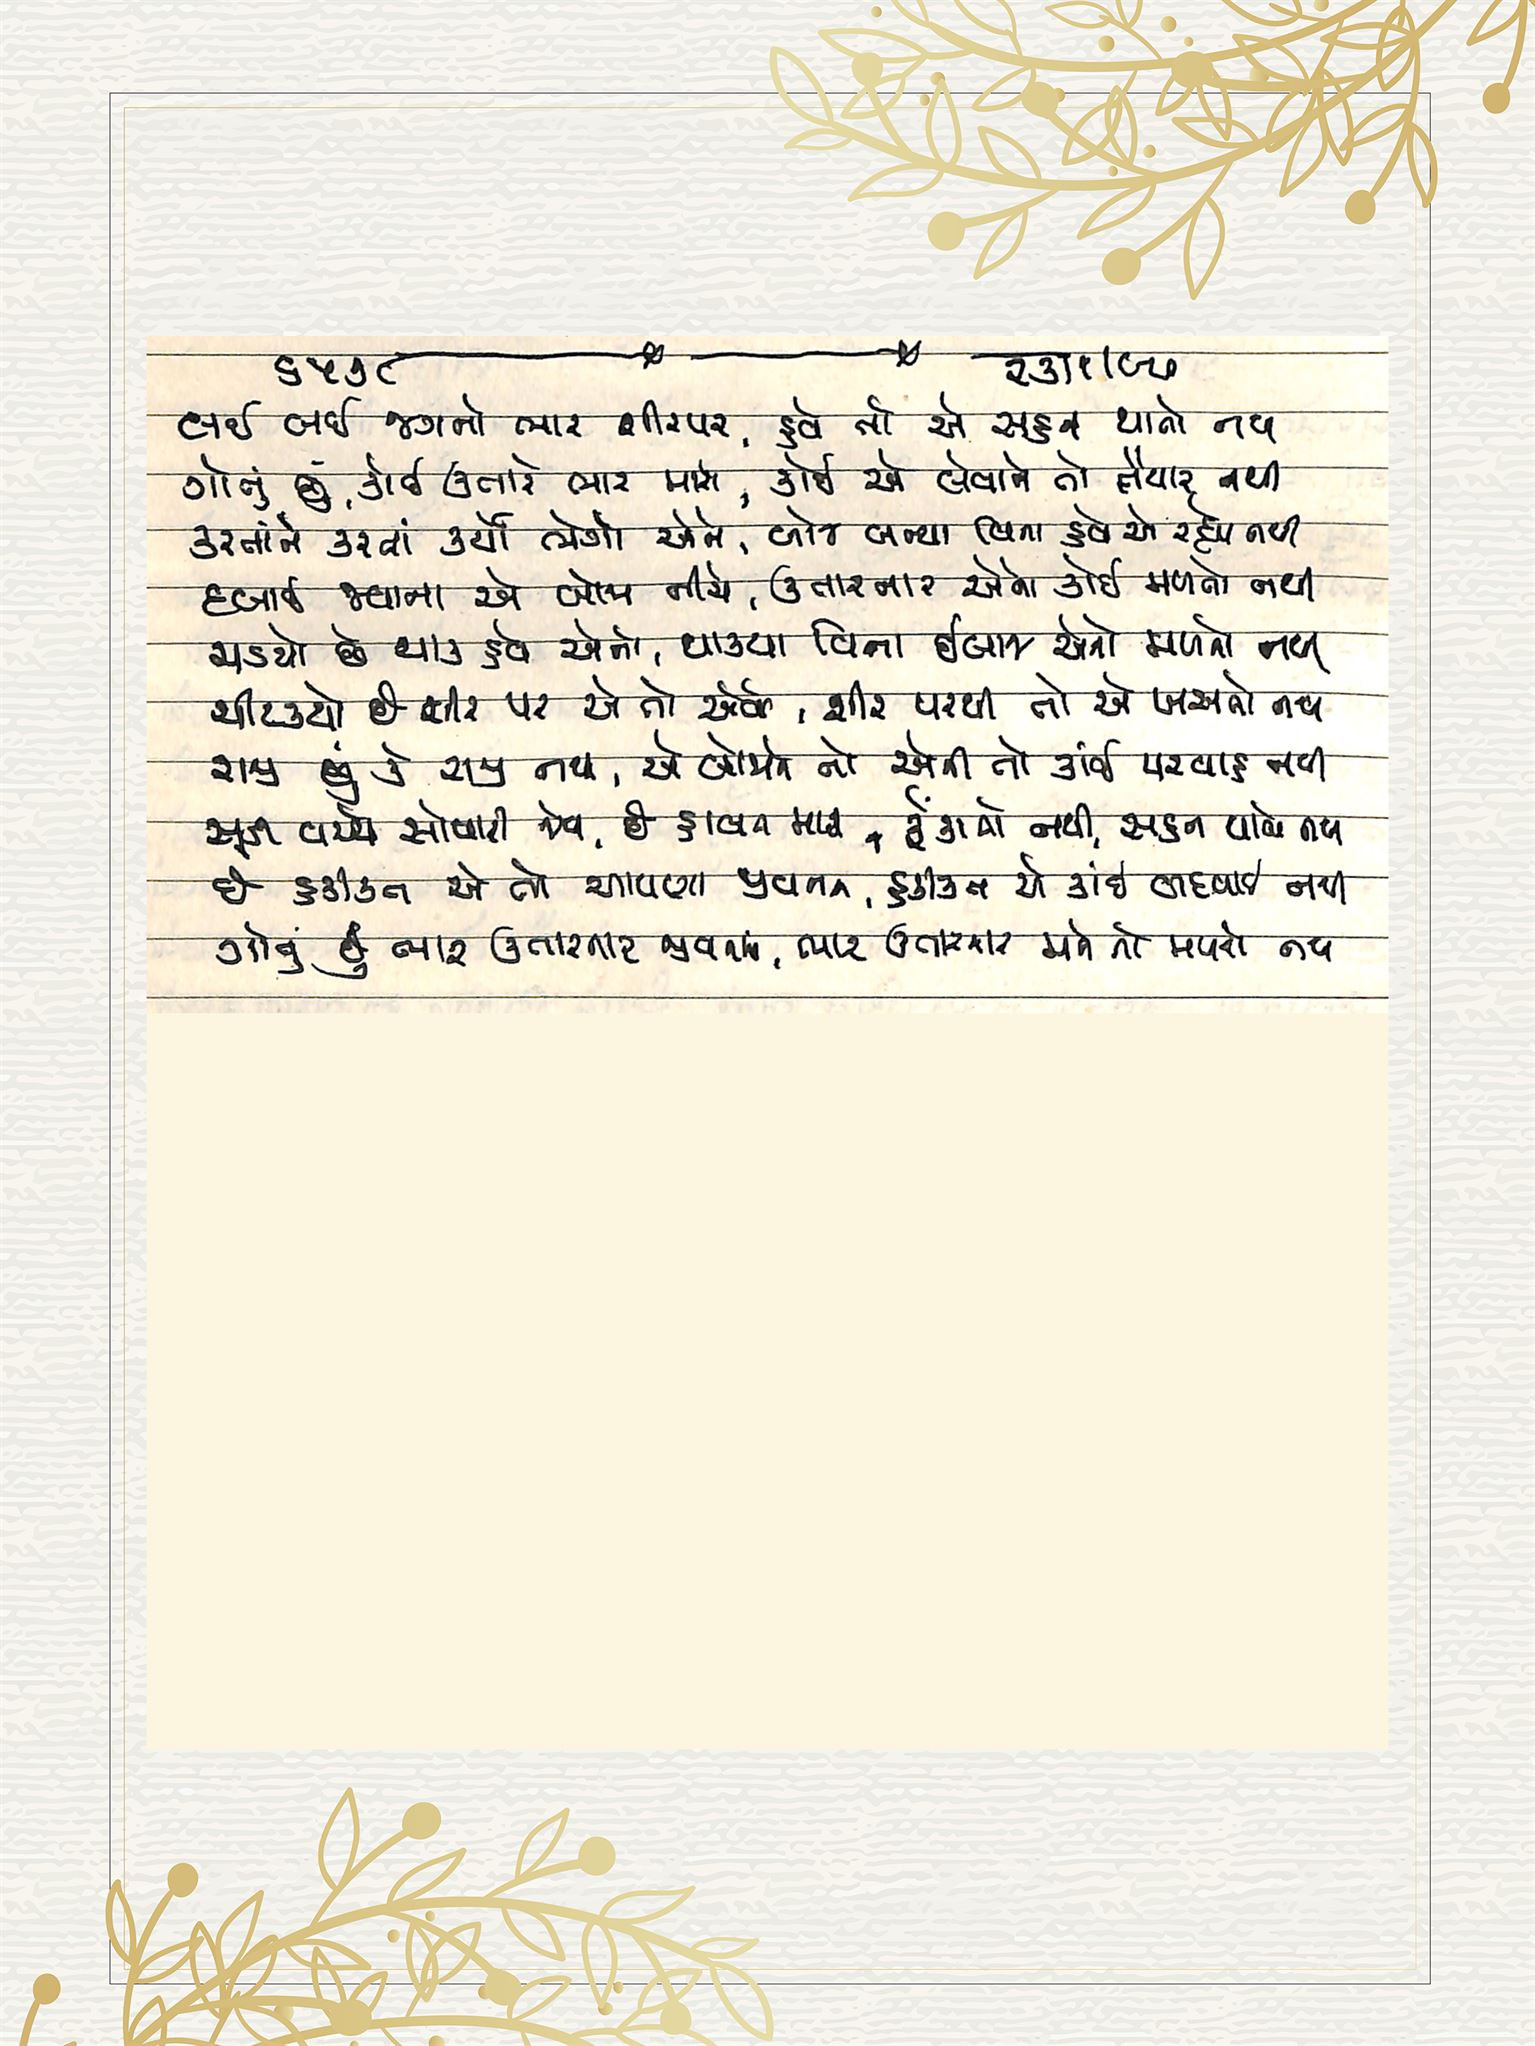 ૬૫૩૯
લઈ લઈ જગનો ભાર શીરપર, હવે તો એ સહન થાતો નથી
ગોતું છું, કોઈ ઉતારે ભાર મારો, કોઈ એ લેવાને તો તૈયાર નથી
કરતાંને કરતાં કર્યો ભેગો એને, બોજ બન્યા વિના હવે એ રહ્યો નથી
દબાઈ ગ્યાના એ બોજ નીચે, ઉતારનાર એને કોઈ મળતો નથી
ચડયો છે થાક હવે એનો, થાકયા વિના ઈલાજ એનો મળતો નથી
ચીટકયો છે શીર પર એ તો એવો, શીર પરથી તો એ ખસતો નથી
રાજી છું કે રાજી નથી, એ બોજને તો એની તો કાંઈ પરવાહ નથી
સૂડી વચ્ચે સોપારી જેવી, છે હાલત મારી, સહન થાતી નથી
છે હકીકત એ તો આપણા જીવનની, હકીકત એ કાંઈ લાદવાઈ નથી
ગોતું છું ભાર ઉતારનાર જીવનમાં, ભાર ઉતારનાર મને તો મળતો નથી